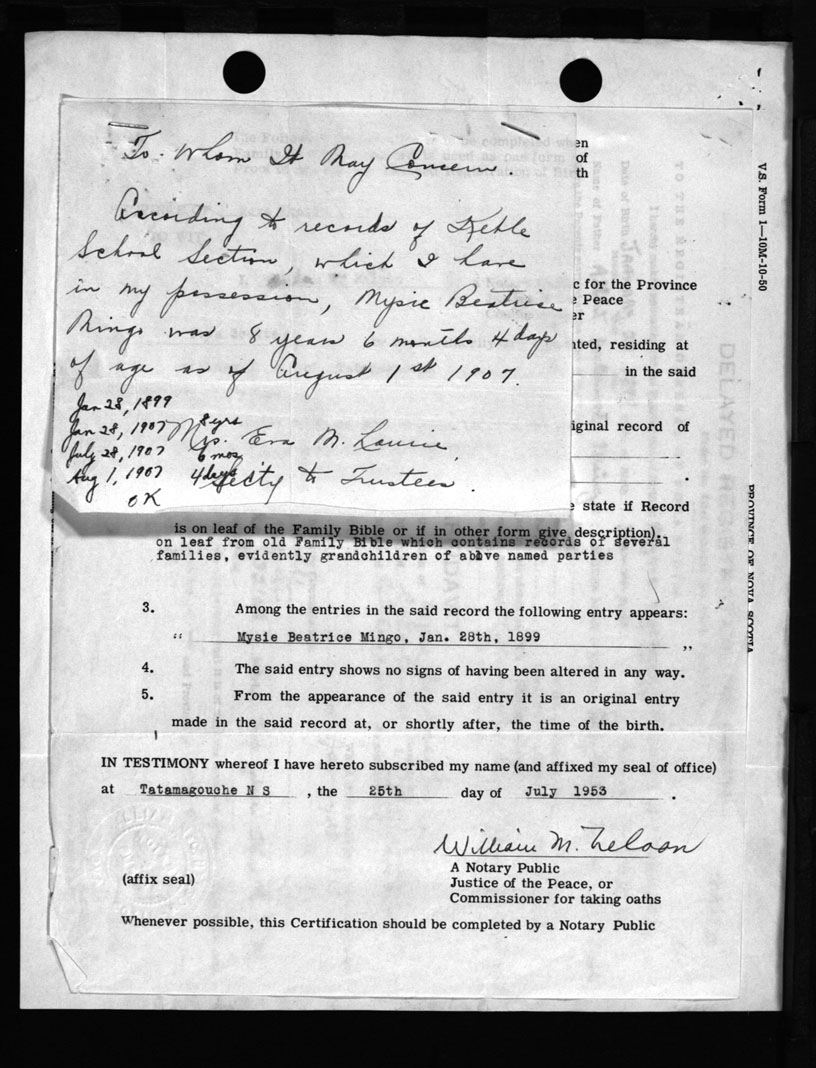 To Whom It May Concern.
According to records of Kehle
School Section, which I have
in my possession, Mysie Beatrice
Mingo was 8 years 6 months 4 days
of age as of August 1st 1907.
Jan 28, 1899
Jan 28, 1907 8 yrs
July 28, 1907 6 mos
Aug 1, 1907 4 days
OK
Mrs. Eva M.
Secty to Trustees.
en
of
th
c for the Province
e Peace
er
ated, residing at
in the said
iginal record of
.
e state if Record
is on leaf of the Family Bible or if in other form give description).
on leaf from old Family Bible which contains records of several
families, evidently grandchildren of above named parties
3. Among the entries in the said record the following entry appears:
“ Mysie Beatrice Mingo, Jan. 28th, 1899 ”
4. The said entry shows no signs of having been altered in any way.
5. From the appearance of the said entry it is an original entry
made in the said record at, or shortly after, the time of the birth.
IN TESTIMONY whereof I have hereto subscribed my name (and affixed my seal of office)
at Tatamagouche N S , the 25th day of July 1953 .
William M. Nelson
A Notary Public
(affix seal)
Justice of the Peace, or
Commissioner for taking oaths
Whenever possible, this Certification should be completed by a Notary Public
V.S. Form 1—10M-10-50
PROVINCE OF NOVA SCOTIA